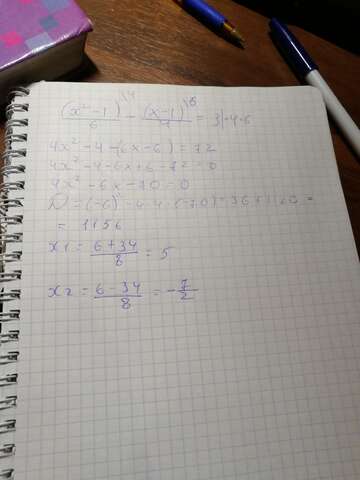 \4 \6
(x²-1)/6 - (x-1)/4 = 3 |·4·6
4x²-4-(6x-6)=72
4x²-4-6x+6-72=0
4x²-6x-70=0
D=(-6)²-4·4·(-70)=36+1120=
= 1156
x1 = (6+34)/8 = 5
x2 = (6-34)/8 = -7/2